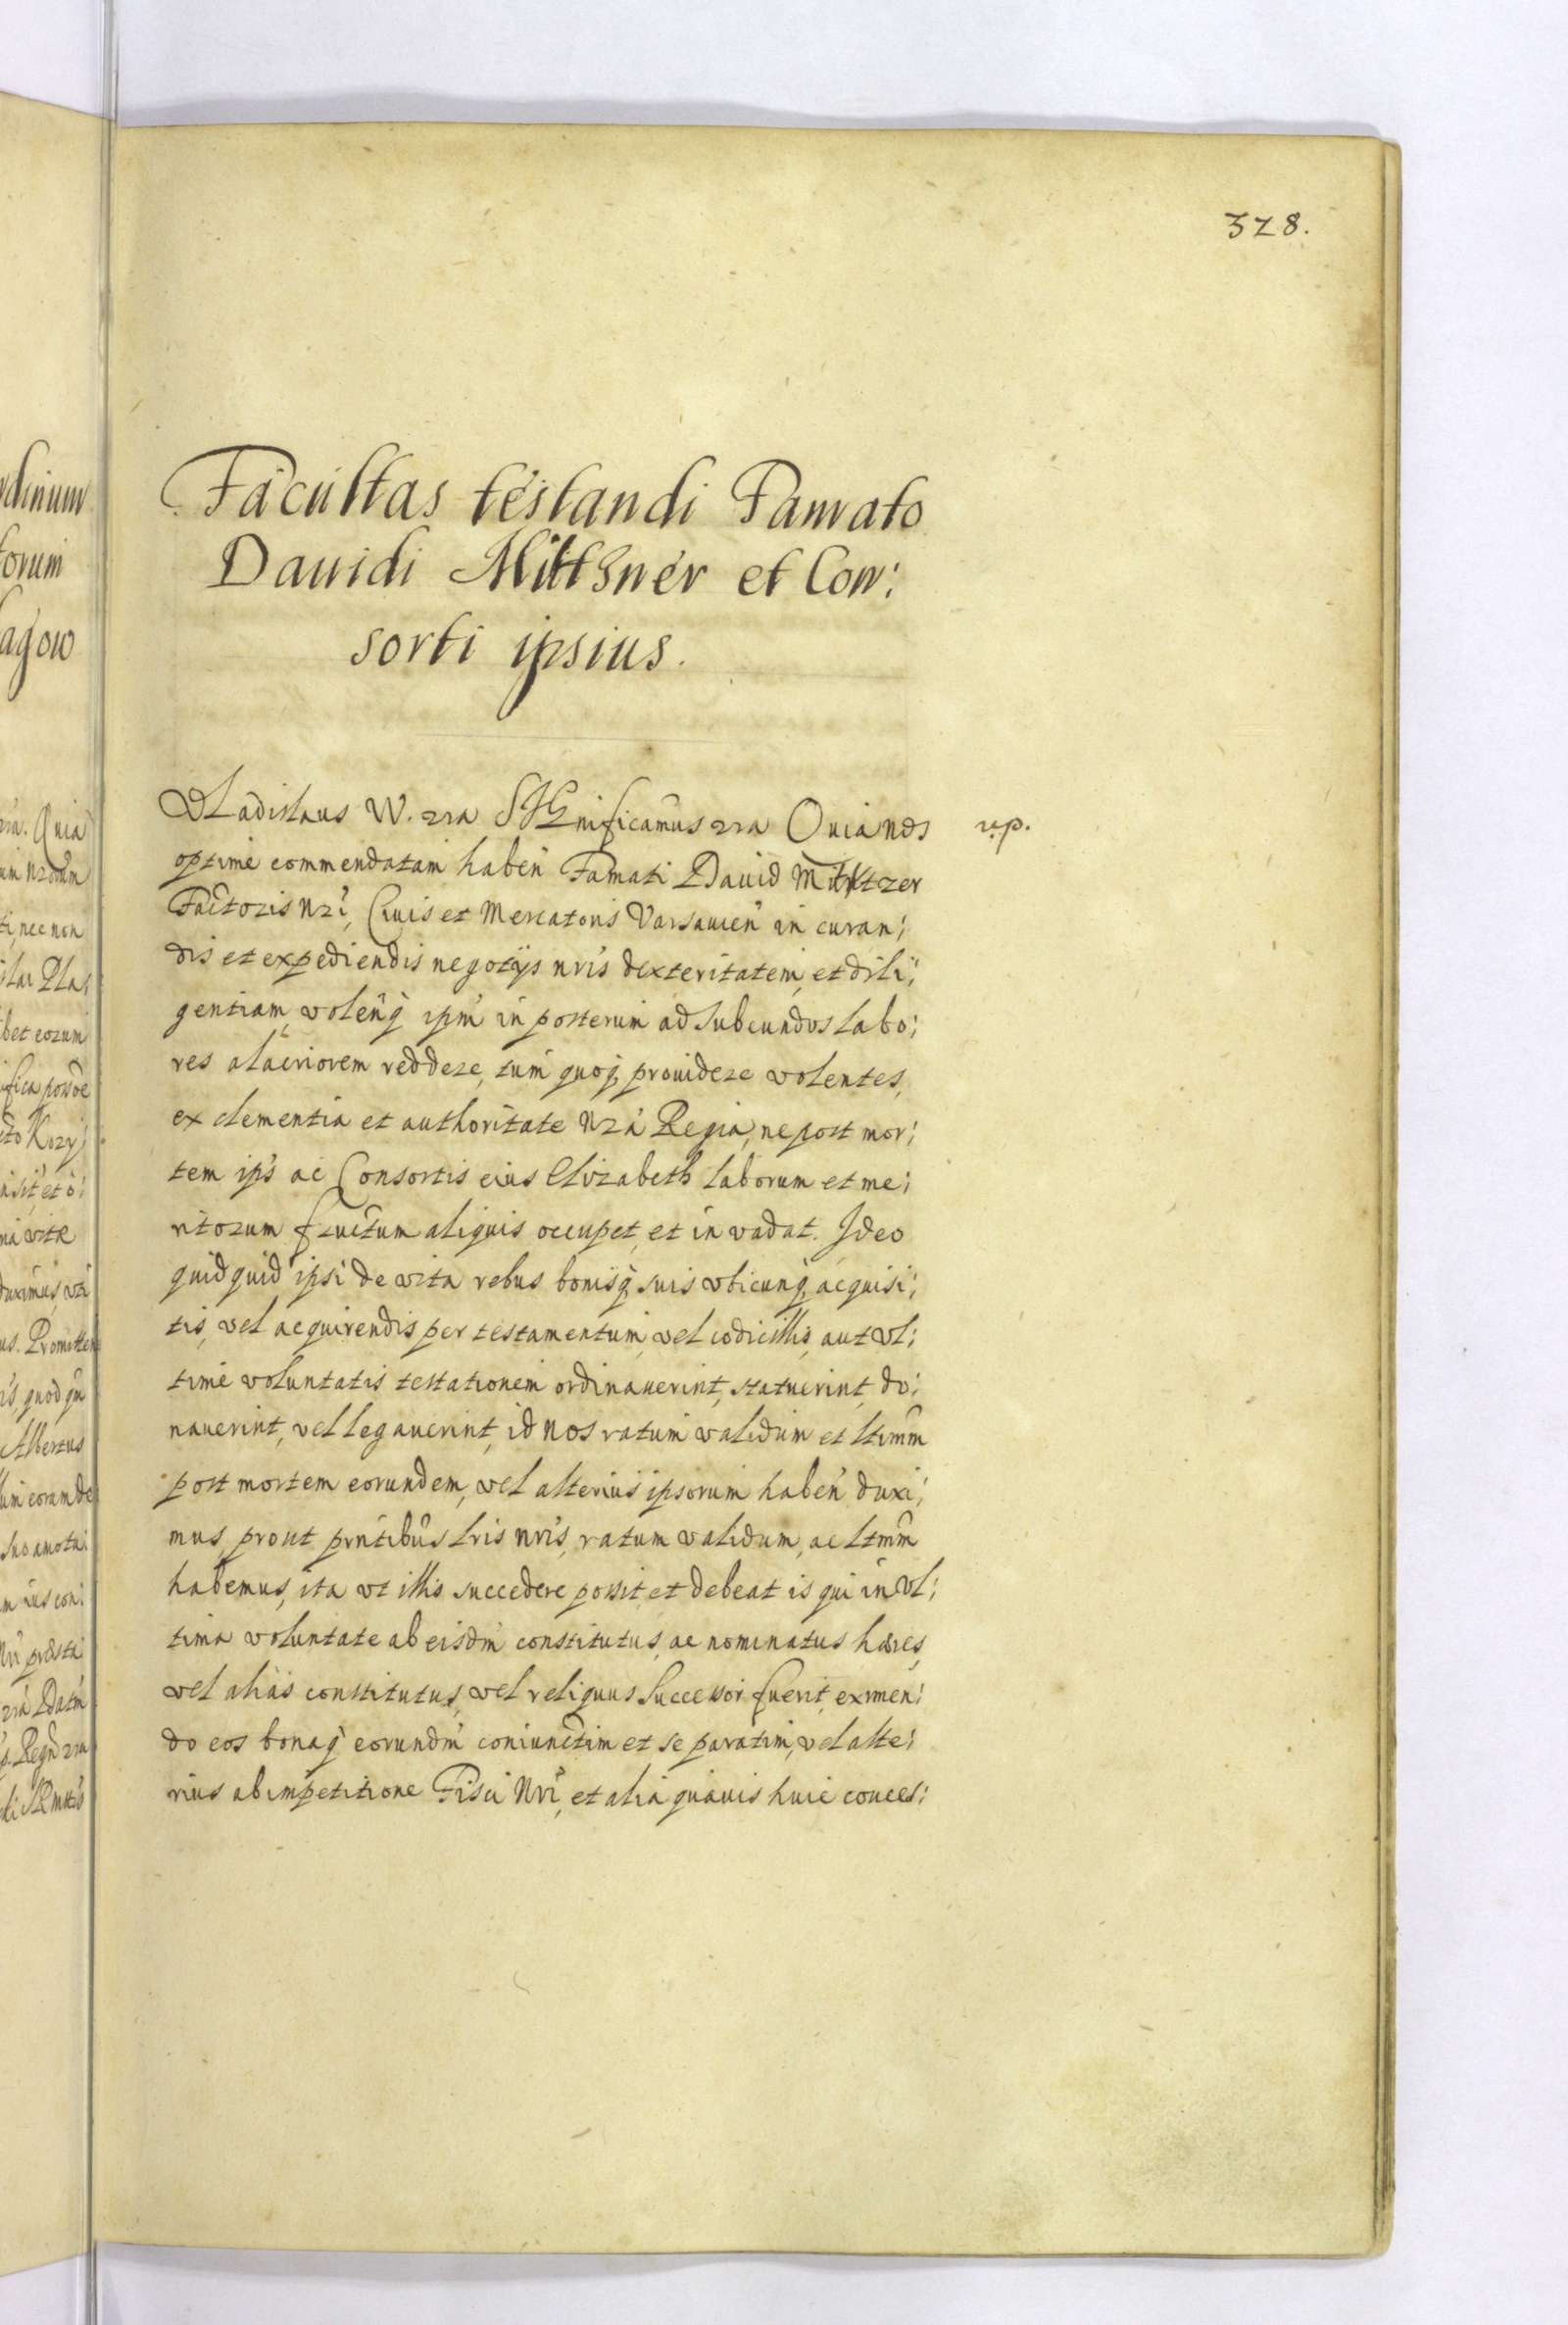 328.
Facultas testandi Famato
Dauidi Mittsner et Con:
sorti ipsius.
VLadislaus W. zra SIGnificamus zra Quia nos
r.p.
optime commendatam haben Famati Dauid
Factoris Nri, Ciuis et Mercatoris Varsauien in curan:
dis et expediendis negotijs nris dexteritatem, et dili:
gentiam, volenq ipm in posterum ad subeundos labo:
res alacriorem reddere, tum quoq prouidere volentes,
ex clementia et authoritate Nra Regia, ne post mor:
tem ips ac Consortis eius Elizabeth laborum et me:
ritorum fructum aliquis occupet, et in vadat. Ideo
quidquid ipsi de vita rebus bonisq suis vbicunq acquisi:
tis, vel acquirendis per testamentum, vel codicillis, aut vl:
time voluntatis testationem ordinauerint, statuerint, do:
nauerint, vel legauerint, id nos ratum validum et ltimm
post mortem eorundem, vel alterius ipsorum haben duxi:
mus, prout prntibus lris nris, ratum validum, ac ltmm
habemus, ita vt illis succedere possit, et debeat is qui in vl:
tima voluntate ab eisdm constitutus, ac nominatus hæres,
vel alias constitutus, vel reliquus Successor fuerit, eximen:
do eos bonaq eorundm coniunctim et separatim, vel alte:
rius ab impetitione Fisci Nri, et alia quauis huic conces: